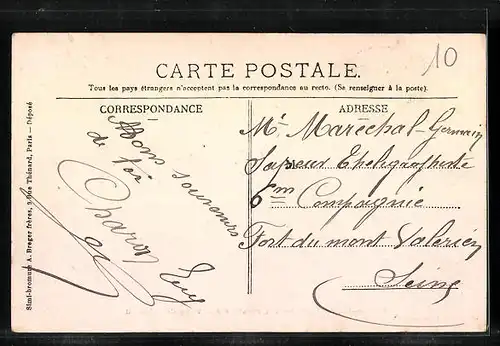 10
CARTE POSTALE.
Tous les pays étrangers n'acceptent pas la correspondance au recto. (Se renseigner à la poste).
CORRESPONDANCE
ADRESSE
souvenirs
de
Mr Maréchal-Germain
Sapeur
6me Compagnie
Fort du mont Valérien
Seine
Simi-bromure A. Breger frères, 9, Rue Thénard, Paris — Déposé